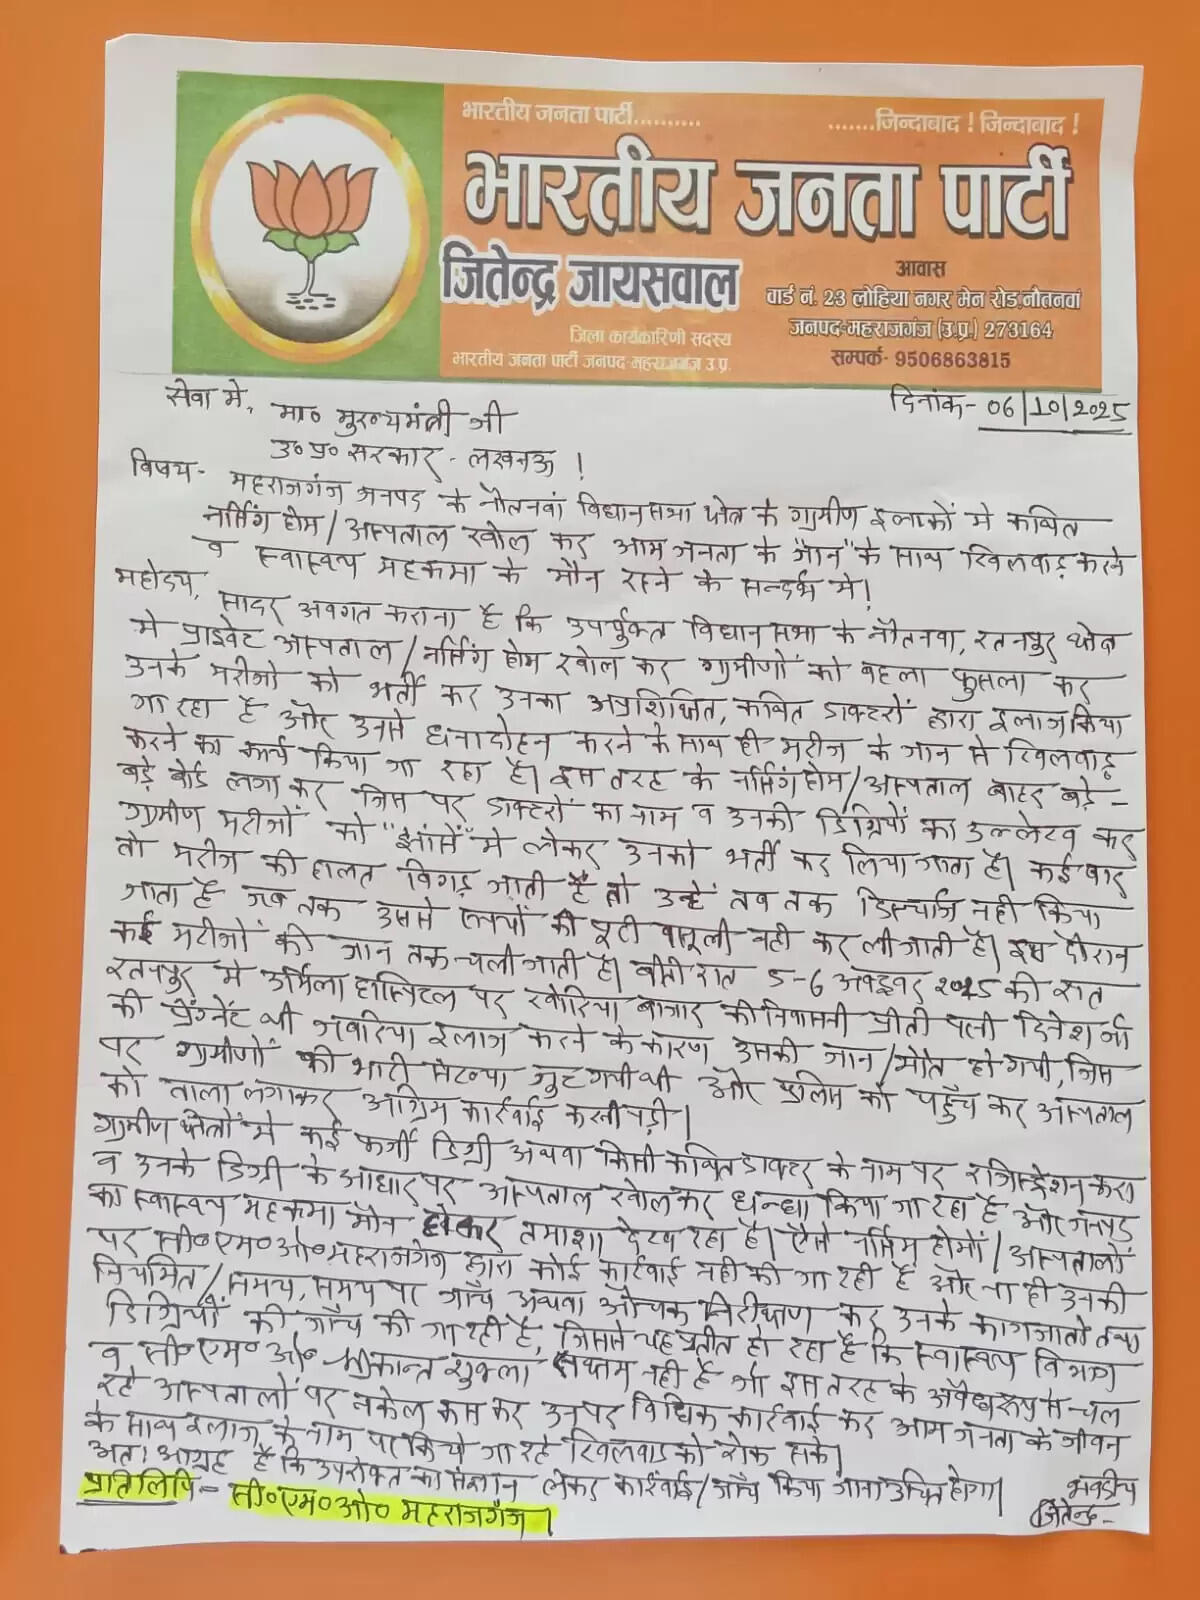 भारतीय जनता पार्टी..........
.......जिन्दाबाद ! जिन्दाबाद !
भारतीय जनता पार्टी
जितेन्द्र जायसवाल
जिला कार्यकारिणी सदस्य
भारतीय जनता पार्टी जनपद-महराजगंज उ.प्र.
आवास
वार्ड नं. 23 लोहिया नगर मेन रोड़ नौतनवां
जनपद-महराजगंज (उ.प्र.) 273164
सम्पर्क- 9506863815
दिनांक- 06/10/2025
सेवा मे,
मा० मुख्यमंत्री जी
उ० प्र० सरकार - लखनऊ !
विषय- महराजगंज जनपद के नौतनवां विधानसभा क्षेत्र के ग्रामीण इलाकों मे कथित
नर्सिंग होम/ अस्पताल खोल कर आम जनता के "जान" के साथ खिलवाड़ करने
व स्वास्थ्य महकमा के मौन रहने के सन्दर्भ मे!
महोदय, सादर अवगत कराना है कि उपर्युक्त विधानसभा के नौतनवा, रतनपुर क्षेत्र
मे प्राइवेट अस्पताल/नर्सिंग होम खोल कर ग्रामीणों को बहला फुसला कर
उनके मरीजो को भर्ती कर उनका अप्रशिक्षित, कथित डाक्टरों द्वारा इलाज किया
जा रहा है और उनसे धनादोहन करने के साथ ही मरीज के जान से खिलवाड़
करने का कार्य किया जा रहा है। इस तरह के नर्सिंग होम/अस्पताल बाहर बड़े-
बड़े बोर्ड लगा कर जिस पर डाक्टरों का नाम व उनकी डिग्रियों का उल्लेख कर
ग्रामीण मरीजों को "झांसे" मे लेकर उनको भर्ती कर लिया जाता है। कई बार
तो मरीज की हालत बिगड़ जाती है तो उन्हें तब तक डिस्चार्ज नही किया
जाता है जब तक उससे रूपयों की पूरी वसूली नही कर ली जाती है। इस दौरान
कई मरीजों की जान तक चली जाती है। बीती रात 5-6 अक्टूबर 2025 की रात
रतनपुर मे उर्मिला हास्पिटल पर खोरिया बाजार की निवासनी प्रीती पत्नी दिनेश जो
की प्रेग्नेंट थी जबरिया इलाज करने के कारण उसकी जान/मौत हो गयी, जिस
पर ग्रामीणों की भारी संख्या जुट गयी थी और पुलिस को पहुँच कर अस्पताल
को ताला लगाकर अग्रिम कार्रवाई करनी पड़ी।
ग्रामीण क्षेत्रों मे कई फर्जी डिग्री अथवा किसी कथित डाक्टर के नाम पर रजिस्ट्रेशन करा
व उनके डिग्री के आधार पर अस्पताल खोलकर धन्धा किया जा रहा है और जनपद
का स्वास्थ्य महकमा मौन होकर तमाशा देख रहा है। ऐसे नर्सिंग होमों/अस्पतालों
पर सी०एम०ओ० महराजगंज द्वारा कोई कार्रवाई नही की जा रही है और ना ही उनकी
नियमित/समय, समय पर जाँच अथवा औचक निरीक्षण कर उनके कागजातों तथा
डिग्रियों की जाँच की जा रही है, जिससे यह प्रतीत हो रहा है कि स्वास्थ्य विभाग
व सी०एम०ओ० श्रीकान्त शुक्ला सक्षम नही है जो इस तरह के अवैध रूप से चल
रहे अस्पतालों पर नकेल कस कर उनपर विधिक कार्रवाई कर आम जनता के जीवन
के साथ इलाज के नाम पर किये जा रहे खिलवाड को रोक सके।
अतः आग्रह है कि उपरोक्त का संज्ञान लेकर कार्रवाई/जाँच किया जाना उचित होगा।
प्रतिलिपि- सी०एम०ओ० महराजगंज।
भवदीय
जितेन्द्र-